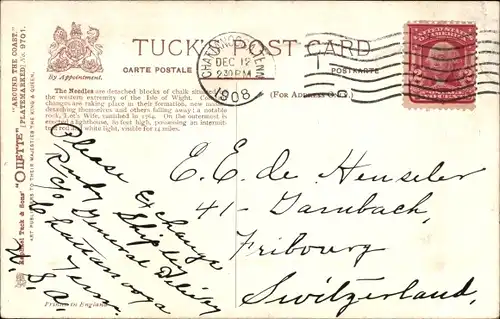 TUCK'S POST CARD
By Appointment.
CARTE POSTALE
POSTKARTE
(FOR ADDRESS ONLY)
CHATTANOOGA, TENN.
DEC 12
2 30 PM
1908
UNITED STATES
OF AMERICA
The Needles are detached blocks of chalk
the western extremity of the Isle of Wight.
changes are taking place in their formation, new
detaching themselves and others falling away; a notable
rock, "Lot's Wife, vanished in 1764. On the outermost is
erected a lighthouse, 80 feet high, possessing an intermit-
red and white light, visible for 14 miles.
Raphael Tuck & Sons' "OILETTE" "AROUND THE COAST."
[PLATEMARKED] No. 9701.
ART PUBLISHERS TO THEIR MAJESTIES THE KING & QUEEN.
Please exchange
Ruby Shipley
c/o General Delivery
Chattanooga
Tenn.
U.S.a.
Printed in England
E. E. de Henseler
41- Jambach,
Fribourg
Switzerland,